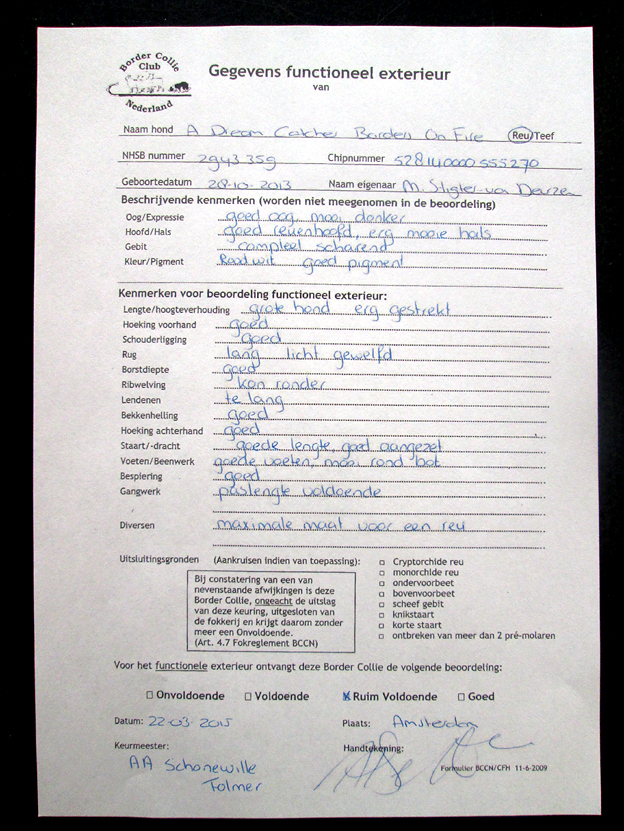 Border Collie
Club
Nederland
Gegevens functioneel exterieur
van
Naam hond A Dream Catcher Borders On Fire Reu/Teef
NHSB nummer 2943359 Chipnummer 528140000555270
Geboortedatum 28-10-2013 Naam eigenaar M. Stigter-van Deurzen
Beschrijvende kenmerken (worden niet meegenomen in de beoordeling)
Oog/Expressie goed oog, mooi donker
Hoofd/Hals goed reuenhoofd, erg mooie hals
Gebit compleet scharend
Kleur/Pigment Rood wit goed pigment
Kenmerken voor beoordeling functioneel exterieur:
Lengte/hoogteverhouding grote hond erg gestrekt
Hoeking voorhand goed
Schouderligging goed
Rug lang licht gewelfd
Borstdiepte goed
Ribwelving kon ronder
Lendenen te lang
Bekkenhelling goed
Hoeking achterhand goed
Staart/-dracht goede lengte, goed aangezet
Voeten/Beenwerk goede voeten, mooi rond bot
Bespiering goed
Gangwerk paslengte voldoende
Diversen maximale maat voor een reu
Uitsluitingsgronden (Aankruisen indien van toepassing):
Cryptorchide reu
monorchide reu
ondervoorbeet
bovenvoorbeet
scheef gebit
knikstaart
korte staart
ontbreken van meer dan 2 pré-molaren
Bij constatering van een van
nevenstaande afwijkingen is deze
Border Collie, ongeacht de uitslag
van deze keuring, uitgesloten van
de fokkerij en krijgt daarom zonder
meer een Onvoldoende.
(Art. 4.7 Fokreglement BCCN)
Voor het functionele exterieur ontvangt deze Border Collie de volgende beoordeling:
Onvoldoende Voldoende Ruim Voldoende Goed
Datum: 22-03-2015 Plaats: Amsterdam
Keurmeester: Handtekening:
AA Schonewille
Tolmer
Formulier BCCN/CFH 11-6-2009